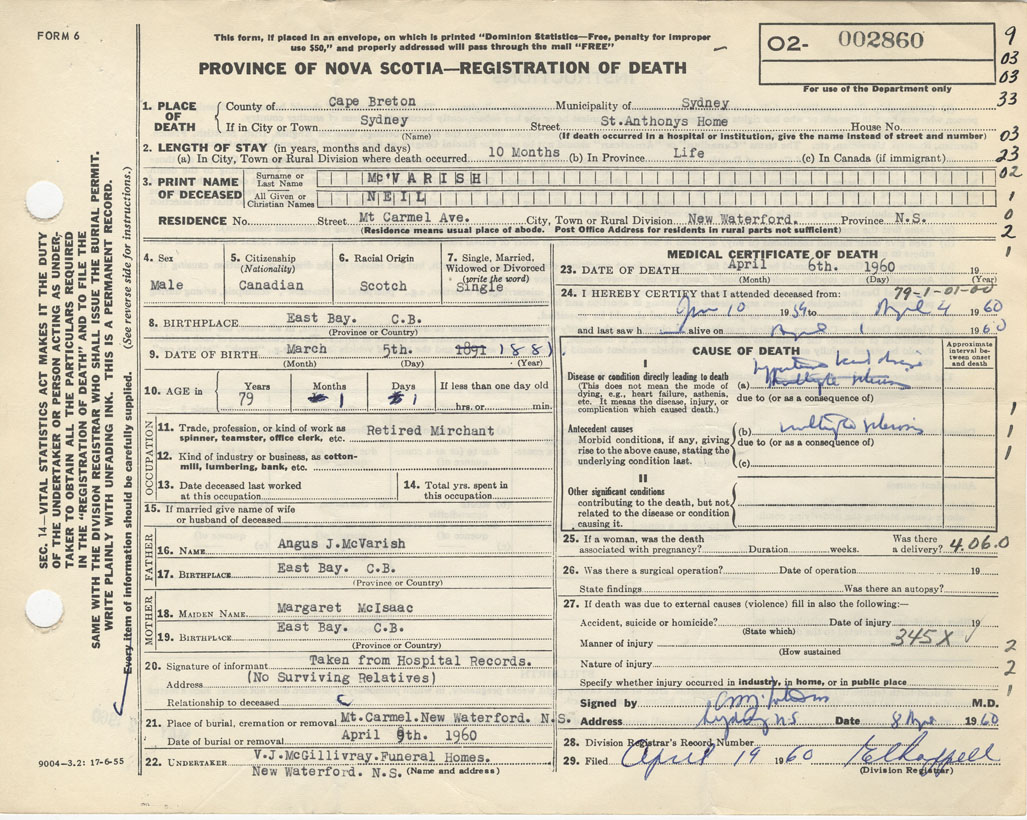 FORM 6
This form, if placed in an envelope, on which is printed "Dominion Statistics—Free, penalty for improper
use $50," and properly addressed will pass through the mail "FREE"
O2- 002860
For use of the Department only
PROVINCE OF NOVA SCOTIA—REGISTRATION OF DEATH
9
03
03
33
03
23
02
1
0
2
1
1. PLACE OF DEATH
County of Cape Breton Municipality of Sydney
If in City or Town Sydney Street St.Anthonys Home House No.
(Name) (If death occurred in a hospital or institution, give the name instead of street and number)
2. LENGTH OF STAY (in years, months and days)
(a) In City, Town or Rural Division where death occurred 10 Months (b) In Province Life (c) In Canada (if immigrant)
3. PRINT NAME OF DECEASED
Surname or Last Name McVARISH
All Given or Christian Names NEIL
RESIDENCE No. Street Mt Carmel Ave. City, Town or Rural Division New Waterford. Province N.S.
(Residence means usual place of abode. Post Office Address for residents in rural parts not sufficient)
4. Sex
Male
5. Citizenship
(Nationality)
Canadian
6. Racial Origin
Scotch
7. Single, Married,
Widowed or Divorced
(write the word)
Single
8. BIRTHPLACE East Bay. C.B.
(Province or Country)
9. DATE OF BIRTH March 5th. 1891 1881
(Month) (Day) (Year)
10. AGE in
Years
79
Months
1
Days
1
If less than one day old
hrs. or min.
OCCUPATION
11. Trade, profession, or kind of work as
spinner, teamster, office clerk, etc. Retired Mirchant
12. Kind of industry or business, as cotton-
mill, lumbering, bank, etc.
13. Date deceased last worked
at this occupation
14. Total yrs. spent in
this occupation
15. If married give name of wife
or husband of deceased
FATHER
16. NAME Angus J.McVarish
17. BIRTHPLACE East Bay. C.B.
(Province or Country)
MOTHER
18. MAIDEN NAME Margaret McIsaac
19. BIRTHPLACE East Bay. C.B.
(Province or Country)
20. Signature of informant Taken from Hospital Records.
Address (No Surviving Relatives)
Relationship to deceased
21. Place of burial, cremation or removal Mt.Carmel.New Waterford. N.S.
Date of burial or removal April 9th. 1960
22. UNDERTAKER V.J.McGillivray.Funeral Homes.
New Waterford. N.S. (Name and address)
MEDICAL CERTIFICATE OF DEATH
23. DATE OF DEATH April 6th. 1960 19
(Month) (Day) (Year)
79-1-01-00
24. I HEREBY CERTIFY that I attended deceased from:
Jan 10 1959 to April 4 1960
and last saw h alive on April 1 1960
CAUSE OF DEATH
Approximate
interval be-
tween onset
and death
I
Disease or condition directly leading to death
(This does not mean the mode of
dying, e.g., heart failure, asthenia,
etc. It means the disease, injury, or
complication which caused death.)
(a)
due to (or as a consequence of)
Antecedent causes
Morbid conditions, if any, giving
rise to the above cause, stating the
underlying condition last.
(b) multiple sclerosis
due to (or as a consequence of)
(c)
1
1
1
II
Other significant conditions
contributing to the death, but not
related to the disease or condition
causing it.
25. If a woman, was the death
associated with pregnancy? Duration weeks. Was there
a delivery? 4.06.0
26. Was there a surgical operation? Date of operation 19
State findings Was there an autopsy?
27. If death was due to external causes (violence) fill in also the following:—
Accident, suicide or homicide? Date of injury 19
(State which)
Manner of injury 345X
(How sustained
Nature of injury
Specify whether injury occurred in industry, in home, or in public place
2
2
1
Signed by M.D.
Address Sydney N.S Date 8 April 1960
28. Division Registrar's Record Number
29. Filed April 19 1960
(Division Registrar)
SEC. 14—VITAL STATISTICS ACT MAKES IT THE DUTY
OF THE UNDERTAKER OR PERSON ACTING AS UNDER-
TAKER TO OBTAIN ALL THE PARTICULARS REQUIRED
IN THE "REGISTRATION OF DEATH" AND TO FILE THE
SAME WITH THE DIVISION REGISTRAR WHO SHALL ISSUE THE BURIAL PERMIT.
WRITE PLAINLY WITH UNFADING INK. THIS IS A PERMANENT RECORD.
Every item of information should be carefully supplied. (See reverse side for instructions.)
9004-3.2: 17-6-55